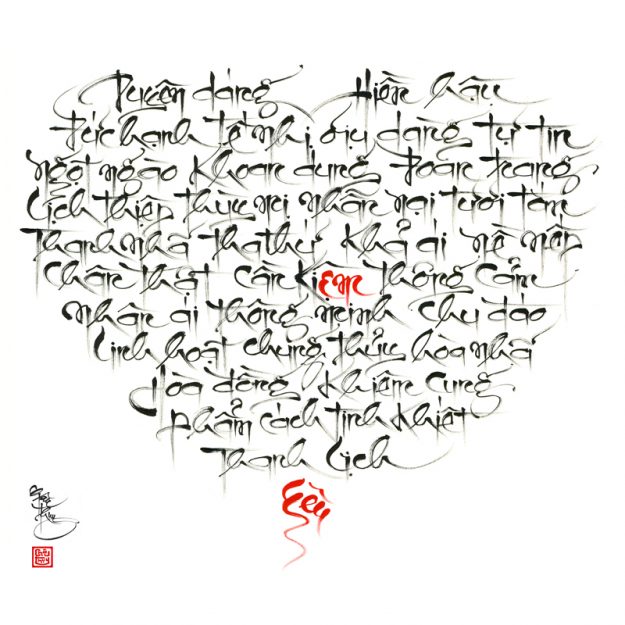 Duyên dáng Hiền hậu
Đức hạnh tế nhị dịu dàng tự tin
ngọt ngào khoan dung Đoan trang
Lịch thiệp thùy mị nhẫn nại tươi tắn
Thanh nhã tha thứ khả ái nề nếp
chân thật cần kiệm thông cảm
nhân ái thông minh chu đáo
Linh hoạt chung thủy hòa nhã
Hòa đồng khiêm cung
phẩm cách tinh khiết
Thanh Lịch